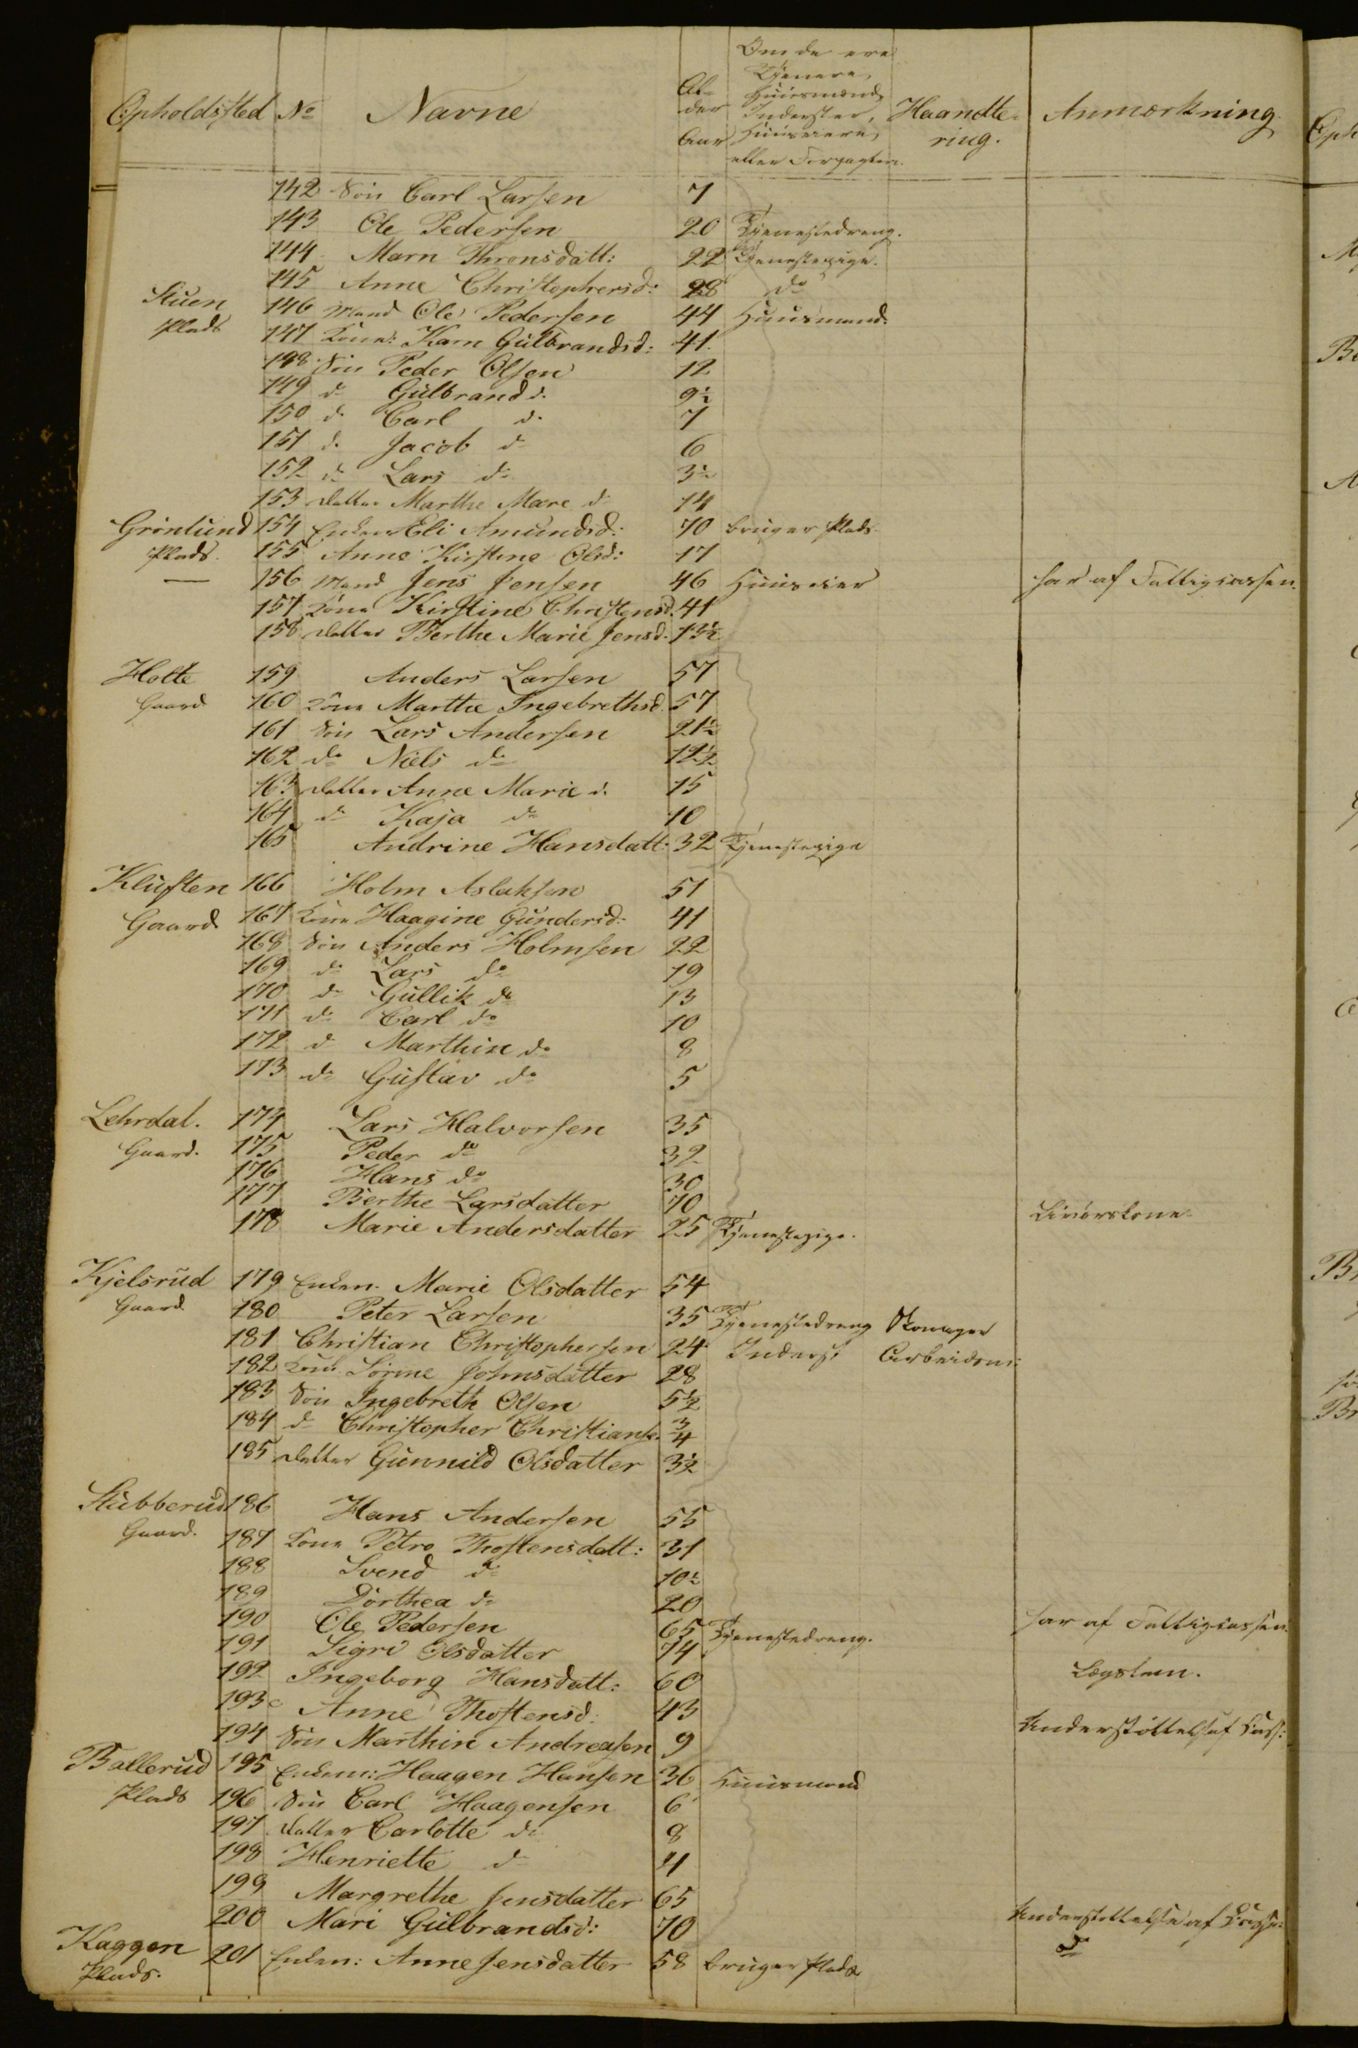 Opholdsfted No Navne Al- der Aar Om de ere Tjenere, Huusmænd, Inderster, Huusleiere eller Forpagtere. Haandte- ring. Anmærkning.
142 Søn Carl Larsen 7
143 Ole Pedersen 20 Tjenestedreng.
144 Marn Thronsdatt: 22 Tjenestepige.
145 Anne Christophersd: 28 do
Stuen 146 Mand Ole Pedersen 44 Huusmand.
Plads 147 Kone: Karn Gulbrandsd: 41.
148 Søn Peder Olsen 12
149 d Gulbrand d. 9½
150 d. Carl d. 7
151 d. Jacob d 6
152 d Lars d: 3½
153 datter Marthe Mare d 14
Grønlund 154 Enken Eli Amundsd: 70 bruger Plads
Plads. 155 Anne Kirstine Olsd: 17
— 156 Mand Jens Jensen 46 Huusleier har af Fattigcassen.
157 Kone Kirstine Christensd. 41
158 datter Berthe Marie Jensd. 13½
Holte 159 Anders Larsen 57
Gaard 160 Kone Marthe Ingebrethsd. 57
161 Søn Lars Andersen 21½
162 do Niels do 12½
163 datter Anne Marie d. 15
164 d Kaja do 10
165 Andrine Hansdatt. 32 Tjenestepige
Kluften 166 Holm Aslaksen 51
Gaard 167 Kone Haagine Gundersd: 41
168 Søn Anders Holmsen 22
169 do Lars do 19
170 do Gullik do 13
171 do Carl do 10
172 d Marthin do 8
173 do Gustav do 5
Lehrdal. 174 Lars Halvorsen 35
Gaard. 175 Peder do 32
176 Hans do 30
177 Berthe Larsdatter 70 Livørskone
178 Marie Andersdatter 25 Tjenestepige.
Kjelsrud 179 Enken. Marie Olsdatter 54
Gaard 180 Peter Larsen 35 Tjenestedreng Skomager
181 Christian Christophersen 24 Inderst Arbeidsm:
182 Kone Sørine Johnsdatter 28
183 Søn Ingebreth Olsen 5½
184 d Christopher Christians. ¾
185 datter Gunnild Olsdatter 3½
Stubberud 186 Hans Andersen 55
Gaard. 187 Kone Petro Thostensdatt: 31
188 Svend d: 10½
189 Dorthea d: 20
190 Ole Pedersen 65 Tjenestedreng. har af Fattigcassen.
191 Sigri Olsdatter 74
192 Ingeborg Hansdatt: 60 Lægslem.
193 Anne Thostensd: 43
194 Søn Marthin Andreasen 9 Understøttelse af Cass:
Ballerud 195 Enkem: Haagen Hansen 36 Huusmand
Plads 196 Søn Carl Haagensen 6
197 datter Carlotte d: 8
198 Henriette d 4
199 Margrethe Jensdatter 65
200 Mari Gulbrandsd: 70 Understøttelse af Casse:
Kaggen 201 Enken: Anne Jensdatter 58 bruger Plads do
Plads.